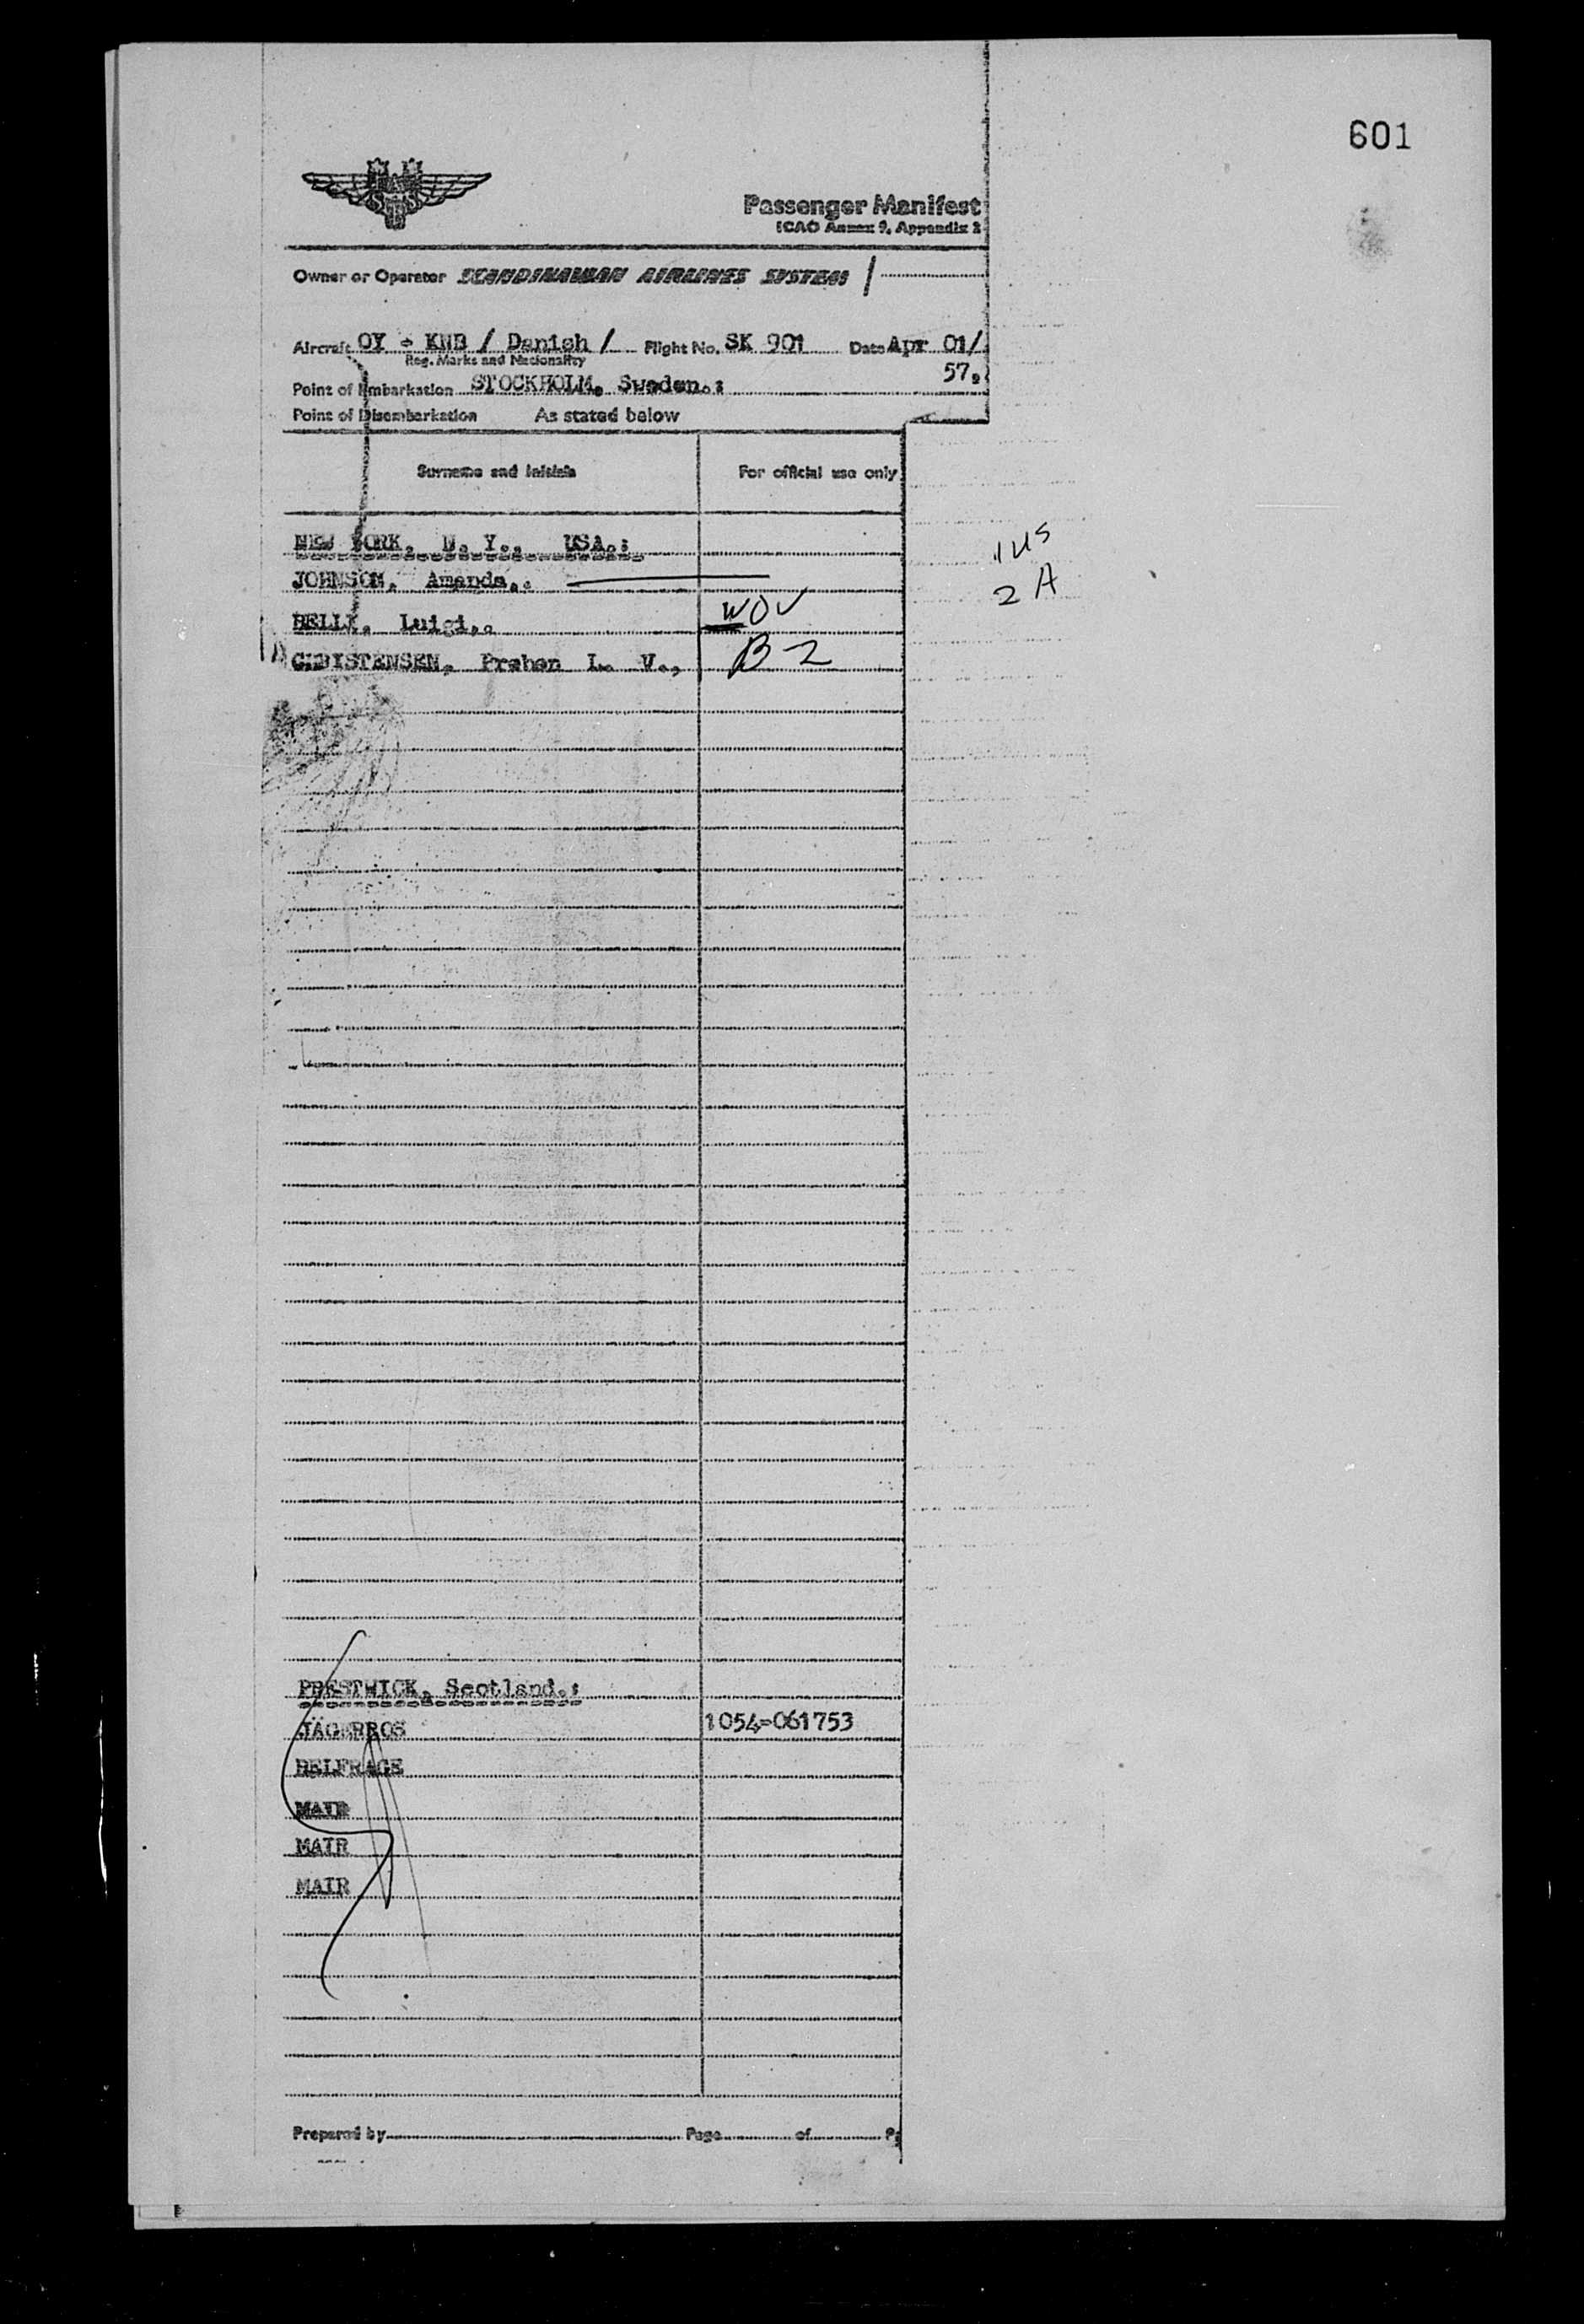 601
SAS
Passenger Manifest
ICAO Annex 9, Appendix 2
Owner or Operator SCANDINAVIAN AIRLINES SYSTEM /
Aircraft OY - KNB / Danish / Flight No. SK 901 Date Apr 01/
Reg. Marks and Nationality
57.
Point of Embarkation STOCKHOLM, Sweden.:
Point of Disembarkation As stated below
Surname and initials For official use only
NEW YORK, N. Y., USA.:
1 US
JOHNSON, Amanda,.
2 A
BELLI, Luigi,. WOV
CHRISTENSEN, Preben L. V., B-2
PRESTWICK, Scotland.:
JÄGERROS 1054-061753
BELFRAGE
MAIR
MAIR
MAIR
Prepared by Page of P